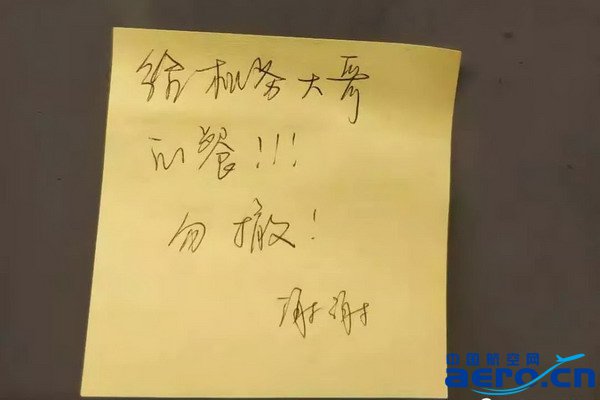 给机务大哥
的餐!!!
勿撤!
谢谢
中国航空网
aero.cn